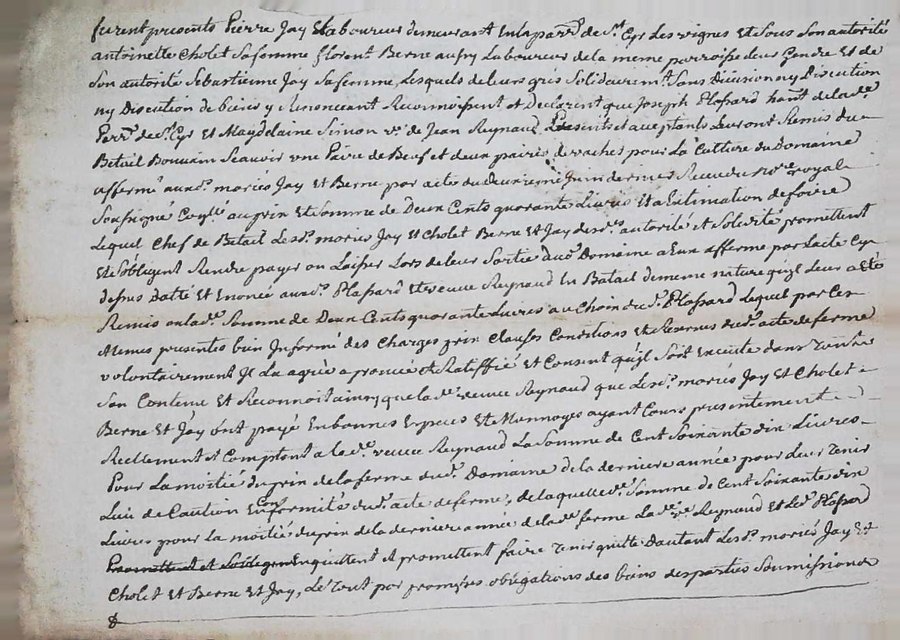 furent presents Pierre Jay Et laboureur demeurant En la parr.se de St Cyr Les vignes Et Sous Son autorité
antoinette Cholet Sa femme florent Berne aussy Laboureur de la meme parroisse Leur Gendre Et de
Son autorité Sebastienne Jay Sa femme, Lesquels de Leurs gres Solidairemt. Sans Division ny Discution
ny Discution de biens y Renonceant Reconnoissent et Declarent que Joseph Plassard hant. de lad.e
Parr.se de St. Cyr Et Magdelaine Simon v.e de Jean Reynaud presents et aceptants Leur ont Remis du
Betail Bouvain Scavoir une Paire de Bœuf et deux pairés de vaches pour La Culture du Domaine
affermé auxd. mariés Jay Et Berne par acte du deuxieme Juin dernier Receu du no.re royal
Soussigné au prix Et Somme de Deux Cents quarante Livres Et a Estimation de foire
Lequel Chef de Betail Lesd. mariés Jay Et Cholet Berne et Jay desd.es autorité Et Solidité promettent
Et S'obligent Rendre payer ou Laisser Lors de leur Sortie dud. Domaine a Eux afferme par Lacte Cy
dessus datté Et Enoncé auxd. Plassard Et veuve Reynaud En Betail de meme nature qu'il Leur a Eté
Remis ou lad.e Somme de Deux Cents quarante Livres au Choix dud. Plassard Lequel par Ces
Memes presentes bien Informé des Charges prix Clauses Conditions Et Reserves dud. acte de ferme
volontairement Il La agréé aprouvé Et Ratiffié Et Consent qu'il Soit Execute dans tout
Son Contenu Et Reconnoit ainsy que lad.e veuve Reynaud que Lesd. mariés Jay Et Cholet
Berne Et Jay ont payé En bonnes Especes Et Monnoyes ayant Cours presentement
Reellement Et Comptant a lad.e veuve Reynaud La Somme de Cent Soixante dix Livres
Pour La moitié du prix de la ferme dud. Domaine de la derniere année pour Leur tenir
Lui de Caution En Conformité dud. acte de ferme, de laquelle d.e Somme de Cent Soixante dix
Livres pour la moitié du prix de la derniere année de lad.e ferme Lad.e v.e Reynaud Et Led. Plassard
Promettent et S'obligent En quittent Et promettent faire tenir quitte Dautant Lesd. mariés Jay Et
Cholet Et Berne Et Jay, Le tout par promesses obligations des biens desparties Soumissions
&